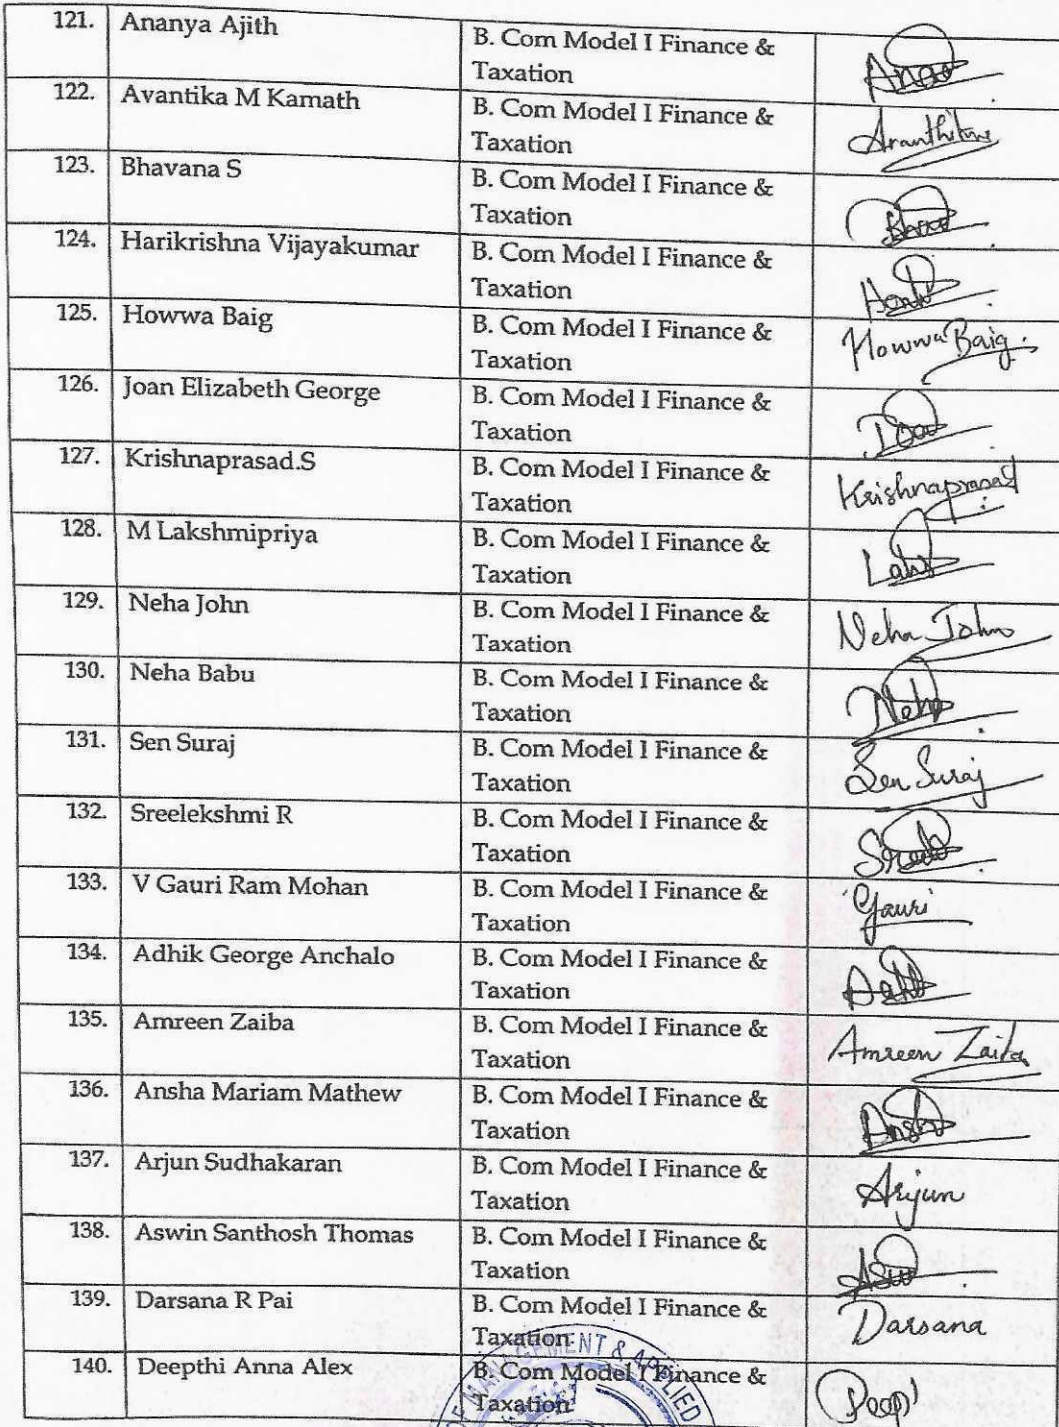 121. Ananya Ajith B. Com Model I Finance &
Taxation
122. Avantika M Kamath B. Com Model I Finance &
Taxation
123. Bhavana S B. Com Model I Finance &
Taxation
124. Harikrishna Vijayakumar B. Com Model I Finance &
Taxation
125. Howwa Baig B. Com Model I Finance & Howwa Baig.
Taxation
126. Joan Elizabeth George B. Com Model I Finance &
Taxation
127. Krishnaprasad.S B. Com Model I Finance & Krishnaprasad
Taxation
128. M Lakshmipriya B. Com Model I Finance &
Taxation
129. Neha John B. Com Model I Finance & Neha John
Taxation
130. Neha Babu B. Com Model I Finance & Neha
Taxation
131. Sen Suraj B. Com Model I Finance & Sen Suraj
Taxation
132. Sreelekshmi R B. Com Model I Finance &
Taxation
133. V Gauri Ram Mohan B. Com Model I Finance & Gauri
Taxation
134. Adhik George Anchalo B. Com Model I Finance &
Taxation
135. Amreen Zaiba B. Com Model I Finance & Amreen Zaiba
Taxation
136. Ansha Mariam Mathew B. Com Model I Finance &
Taxation
137. Arjun Sudhakaran B. Com Model I Finance & Arjun
Taxation
138. Aswin Santhosh Thomas B. Com Model I Finance &
Taxation
139. Darsana R Pai B. Com Model I Finance & Darsana
Taxation
140. Deepthi Anna Alex B. Com Model I Finance &
Taxation
OF MANAGEMENT & APPLIED